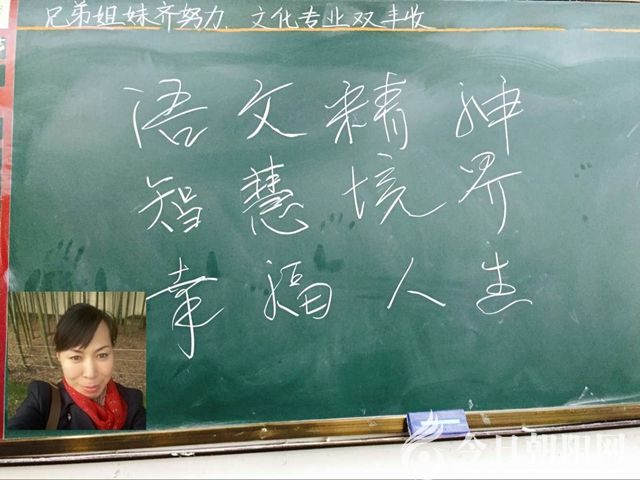 兄弟姐妹齐努力、文化专业双丰收
语文精神
智慧境界
幸福人生
今日朝阳网